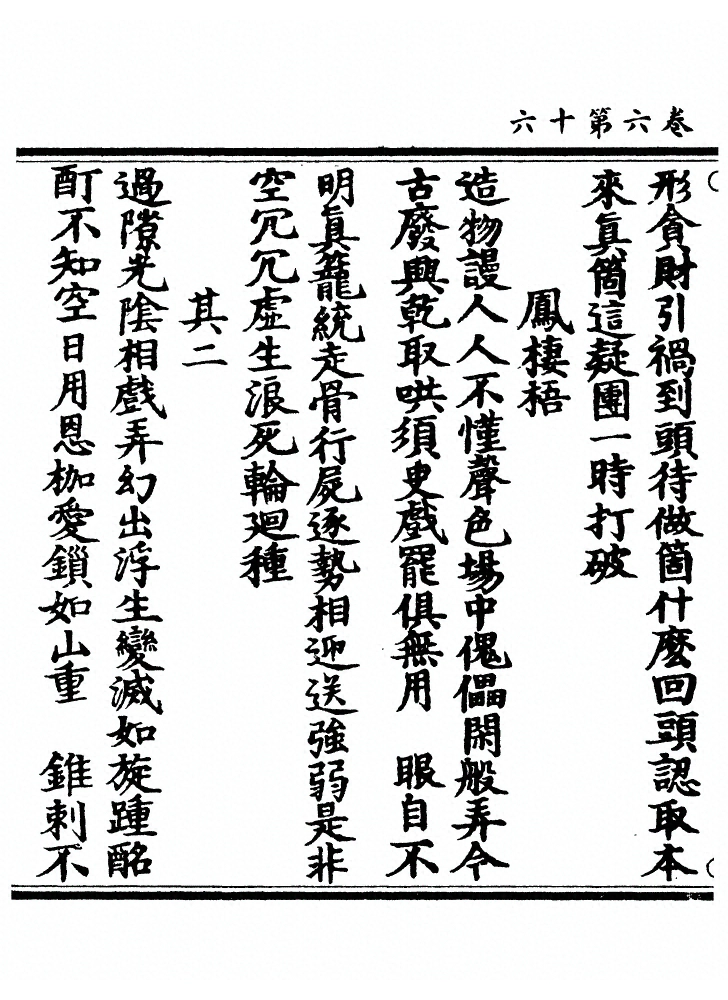 卷六第十六
形貪財引禍到頭待做箇什麼回頭認取本
來真箇這疑團一時打破
鳳棲梧
造物謾人人不懂聲色場中傀儡閑般弄今
古廢興乾取哄須臾戲罷俱無用　眼自不
明真籠統走骨行屍逐勢相迎送強弱是非
空冗冗虛生浪死輪廻種
其二
過隙光陰相戲弄幻出浮生變滅如旋踵酩
酊不知空日用恩枷愛鎖如山重　錐刺不